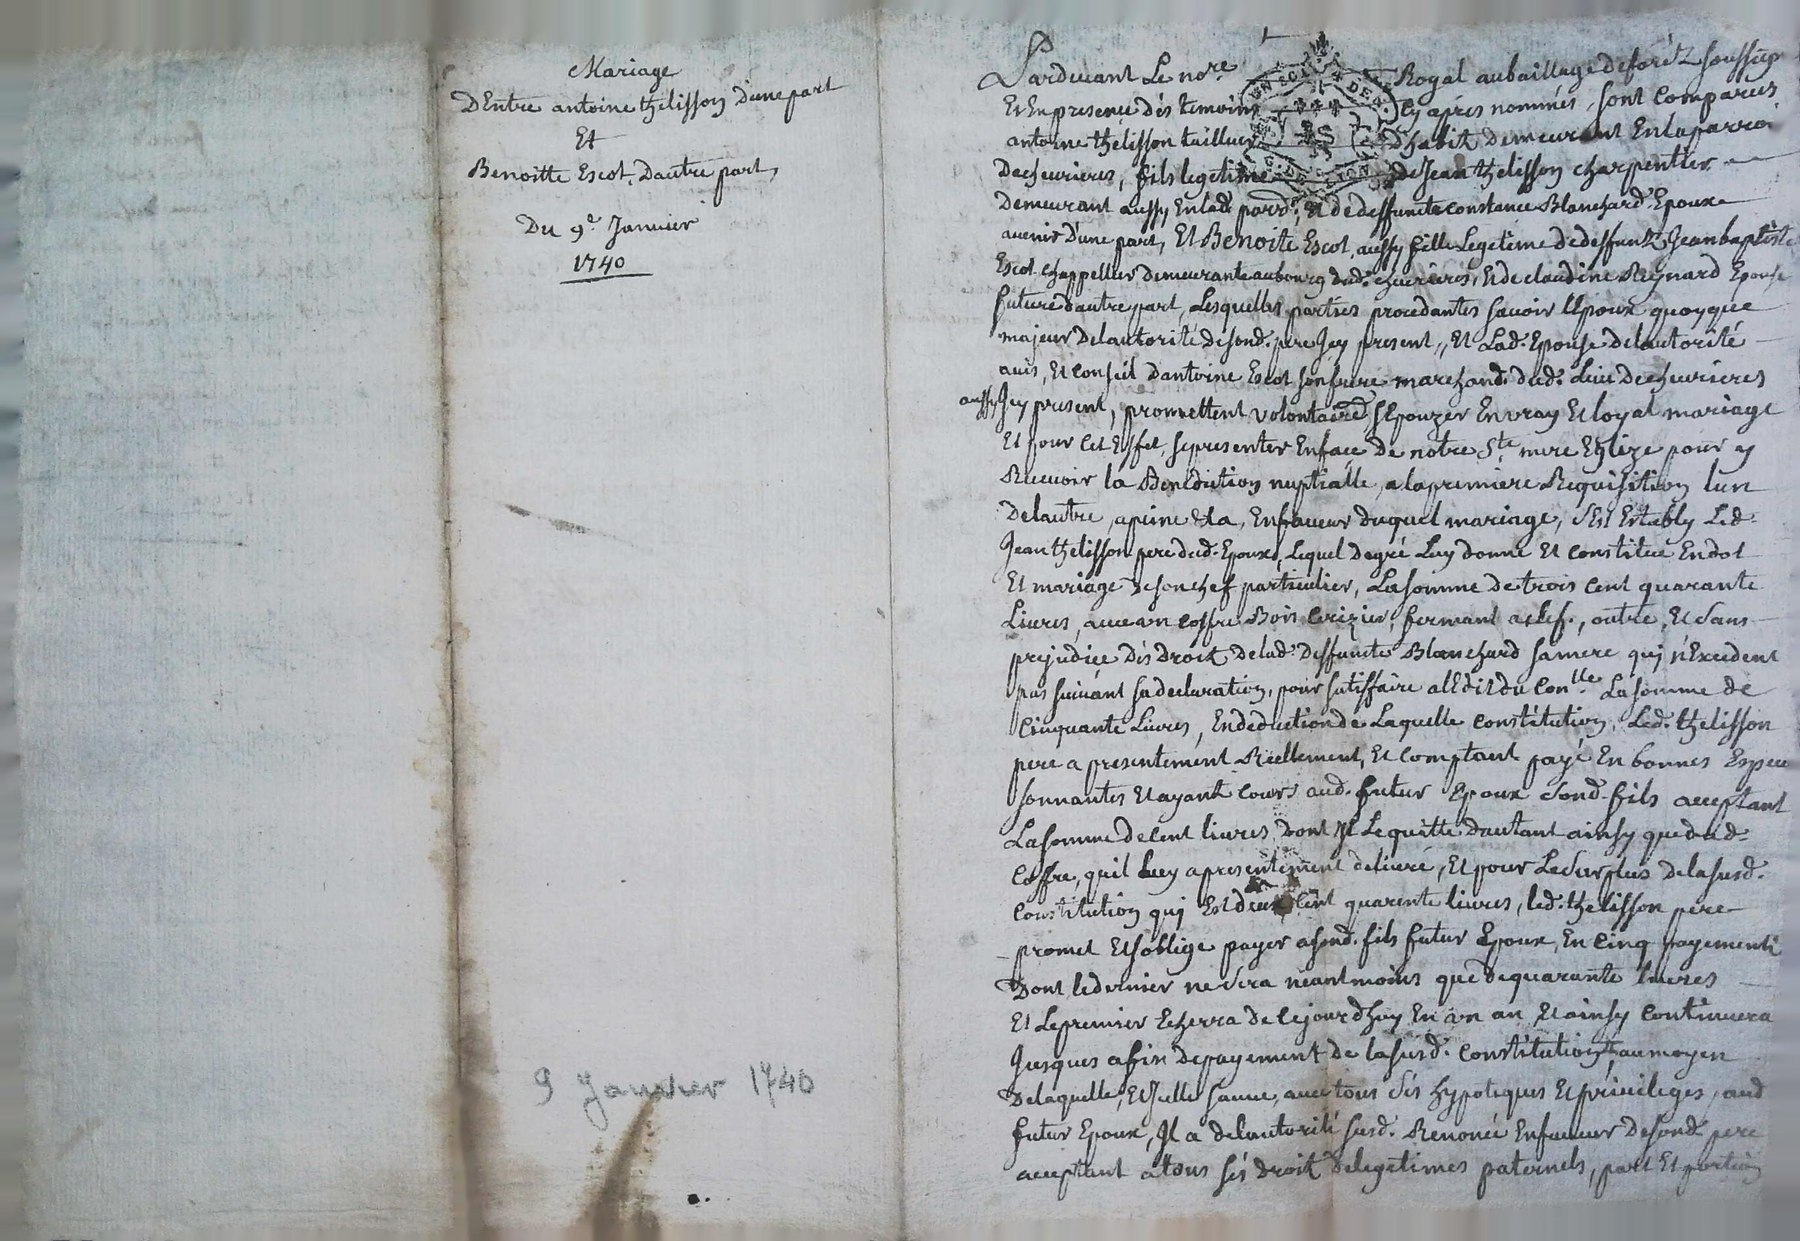 Mariage
D'Entre antoine thelisson D'une part
Et
Benoitte Escot, Dautre part,
Du 9e. Janvier
1740
9 Janvier 1740
Pardevant Le nore Royal aubaillage deforétz soussig
Et En presence dès temoins Cy apres nommés, sont comparus
antoine thelisson tailleur D'habit Demeurant En la parroi
Dechevrieres, fils legetime de Jean thelisson charpentier
Demeurant aussy En lad. parr. Et de deffuncte constance Blanchard Epoux
avenir D'une part, Et Benoite Escot, aussy fille Legetime de deffunt Jean baptiste
Escot chappellier demeurante au bourg dud. chevrieres, & de claudine Reynard Epouse
future d'autre part, Lesquelles parties procedantes savoir L'Epoux quoyque
majeur De l'autorité de son d. pere Jcy present,, Et Lad. Epouse de l'autorité
avis, Et conseil D'antoine Escot son frere marchand dud. Lieu De chevrieres
aussy Jcy present, promettent volontaire d S'Epouzer En vray Et loyal mariage
Et pour cet Effet, se presenter En face de notre Ste. mere Eglize pour y
Recevoir la Benediction nuptialle, a la premiere Requisition l'un
De l'autre, a peine &a, En faveur duquel mariage, s'Est Estably Led.
Jean thelisson pere dud. Epoux, Lequel degré Luy donne Et constitue En dot
Et mariage de son chef particulier, La somme de trois cent quarante
Livres, avec un coffre Bois Cerizier, fermant a clef, outre, Et sans
prejudice Dès droit de lad. deffuncte Blanchard sa mere quj n'Excedent
pas suivant sa declaration, pour satisfaire a l'Edit du Conlle. La somme de
Cinquante Livres, En deduction de Laquelle constitution, Led. thelisson
pere a presentement Reellement, Et comptant payé En bonnes Espece
sonnantes Et ayant cours aud. futur Epoux son d. fils acceptant
La somme de cent livres, dont Jl Le quitte d'autant ainsy que dud.
Coffre, qu'il Luy a presentement delivré, Et pour Le surplus de la susd.
Constitution quj Est deux Cent quarente livres, led. thelisson pere
promet Et s'oblige payer a son d. fils futur Epoux, En cinq payements
Dont le dernier ne Sera neantmoins que de quarante livres
Et Le premier Echerra de ce jourd'huy En un an Et ainsy continuera
Jusques a fin de payement de la susd. constitution, au moyen
De laquelle, Et Jcelle sauve, avec tous sès hypoteques Et privileges, aud
futur Epoux, Jl a de l'autorité susd. Renoncé En faveur de son d. pere
acceptant a tous sès droit de legetimes paternels, part Et portion